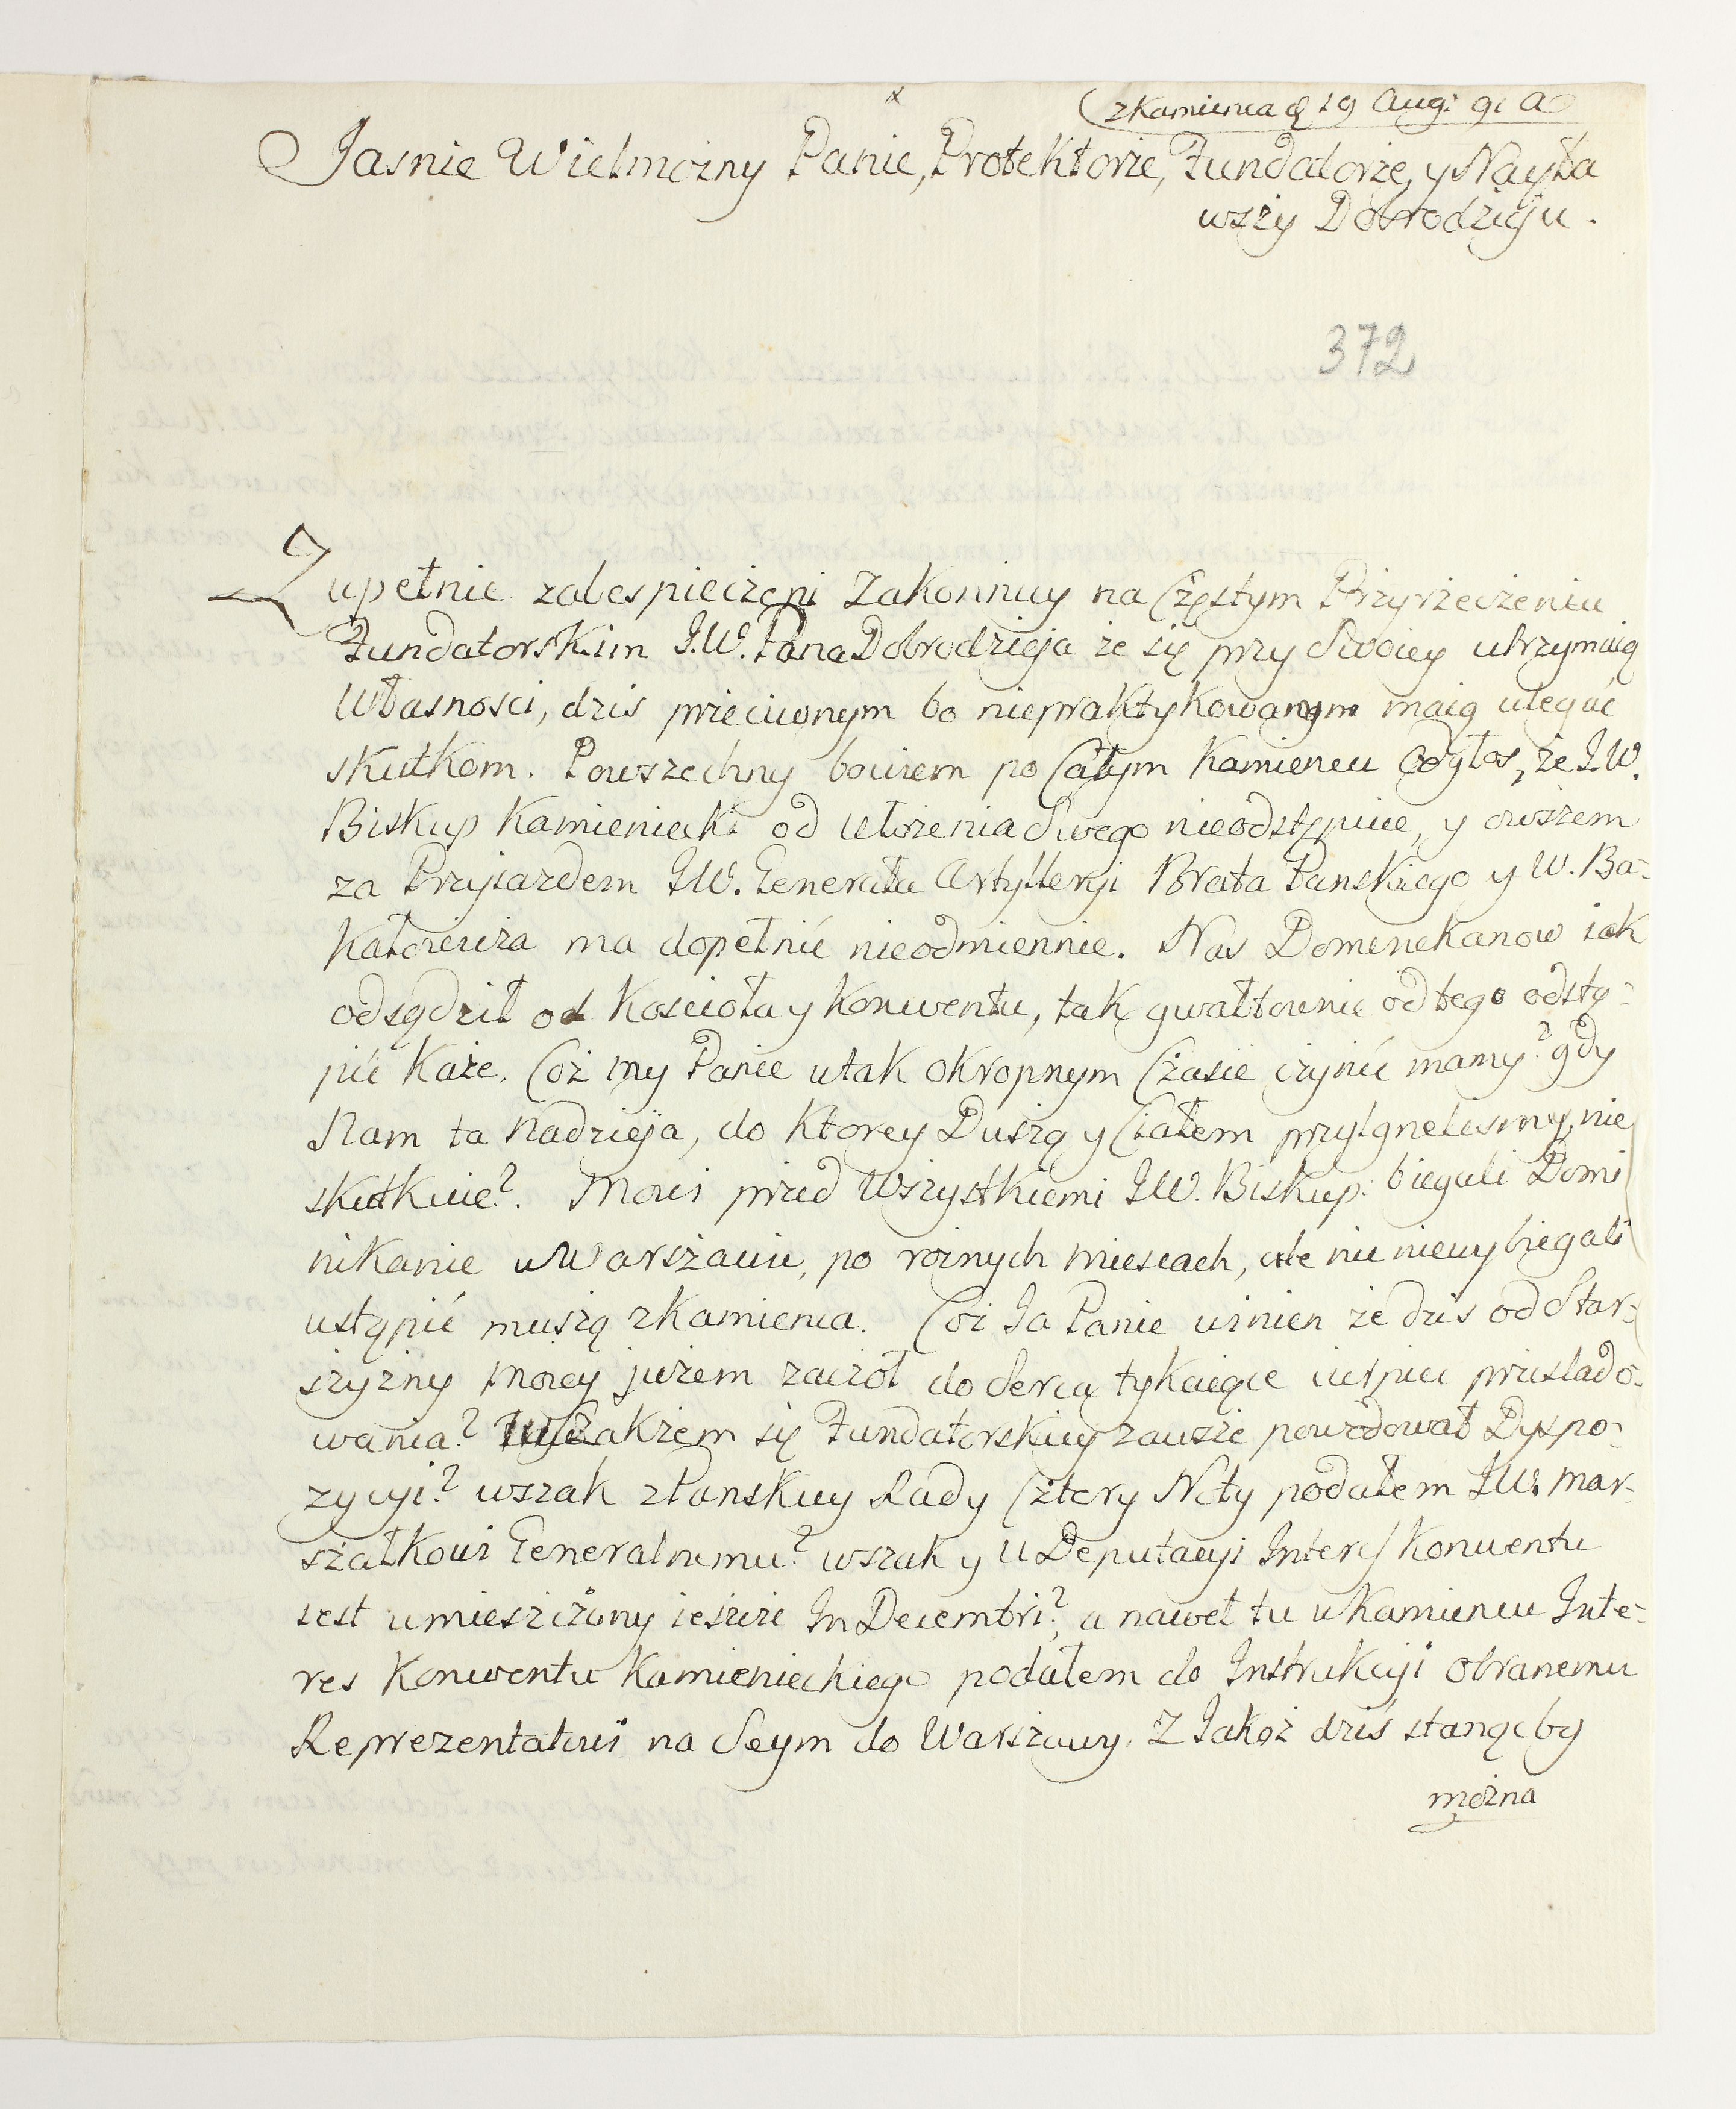 zKamienca d 19 Aug: 91 Ao
Jasnie Wielmożny Panie, Protektorże, Fundatorże, y Nayła
wszy Dobrodzieju.
372
Zupełnie zabespieczeni Zakonnicy na Częstym Przyrzeczeniu
Fundatorskim J.W. Pana Dobrodzieja że się przy Swoiey utrzymaią
Własnosci, dzis przeciwnym bo niepraktykowanym maią ulegać
skutkom. Powszechny bowiem po Całym Kamiencu odgłos, że J.W.
Biskup Kamieniecki od ułożenia Swego nieodstępuie, y owszem
za Przyiazdem J.W. Generała Artylleryi Brata Panskiego y W. Ba-
Kałowicza ma dopełnić nieodmiennie. Nas Domenikanow iak
odsądził od Koscioła y Konwentu, tak gwałtownie od tego odstą-
pić Każe. Coż my Panie w tak okropnym Czasie czynić mamy? gdy
Nam ta Nadzieja, do Ktorey Duszą y Ciałem przylgnelismy, nie
skutkuie?. Mowi przed Wszystkiemi J.W. Biskup: biegali Domi
nikanie w Warszawie, po rożnych miescach, ale nic niewybiegali
ustąpić muszą z Kamienca. Coż Ja Panie winien że dzis od Star-
szyzny Moiey jużem zaczoł do Serca tykaiące cierpiec prześlado-
wania? Wszakżem się Fundatorskiey zawsze powodował Dyspo-
zycyi? wszak z Panskiey Rady Cztery Noty podałem J.W. Mar-
szałkowi Generalnemu? wszak y u Deputacyi Interes Konwentu
iest umieszczony ieszcze In Decembri?, a nawet tu w Kamiencu Inte-
res Konwentu Kamienieckiego podałem do Instrukcyi obranemu
Reprezentatowi na Seym do Warszawy. Z Jakąż dziś stanąc by
można